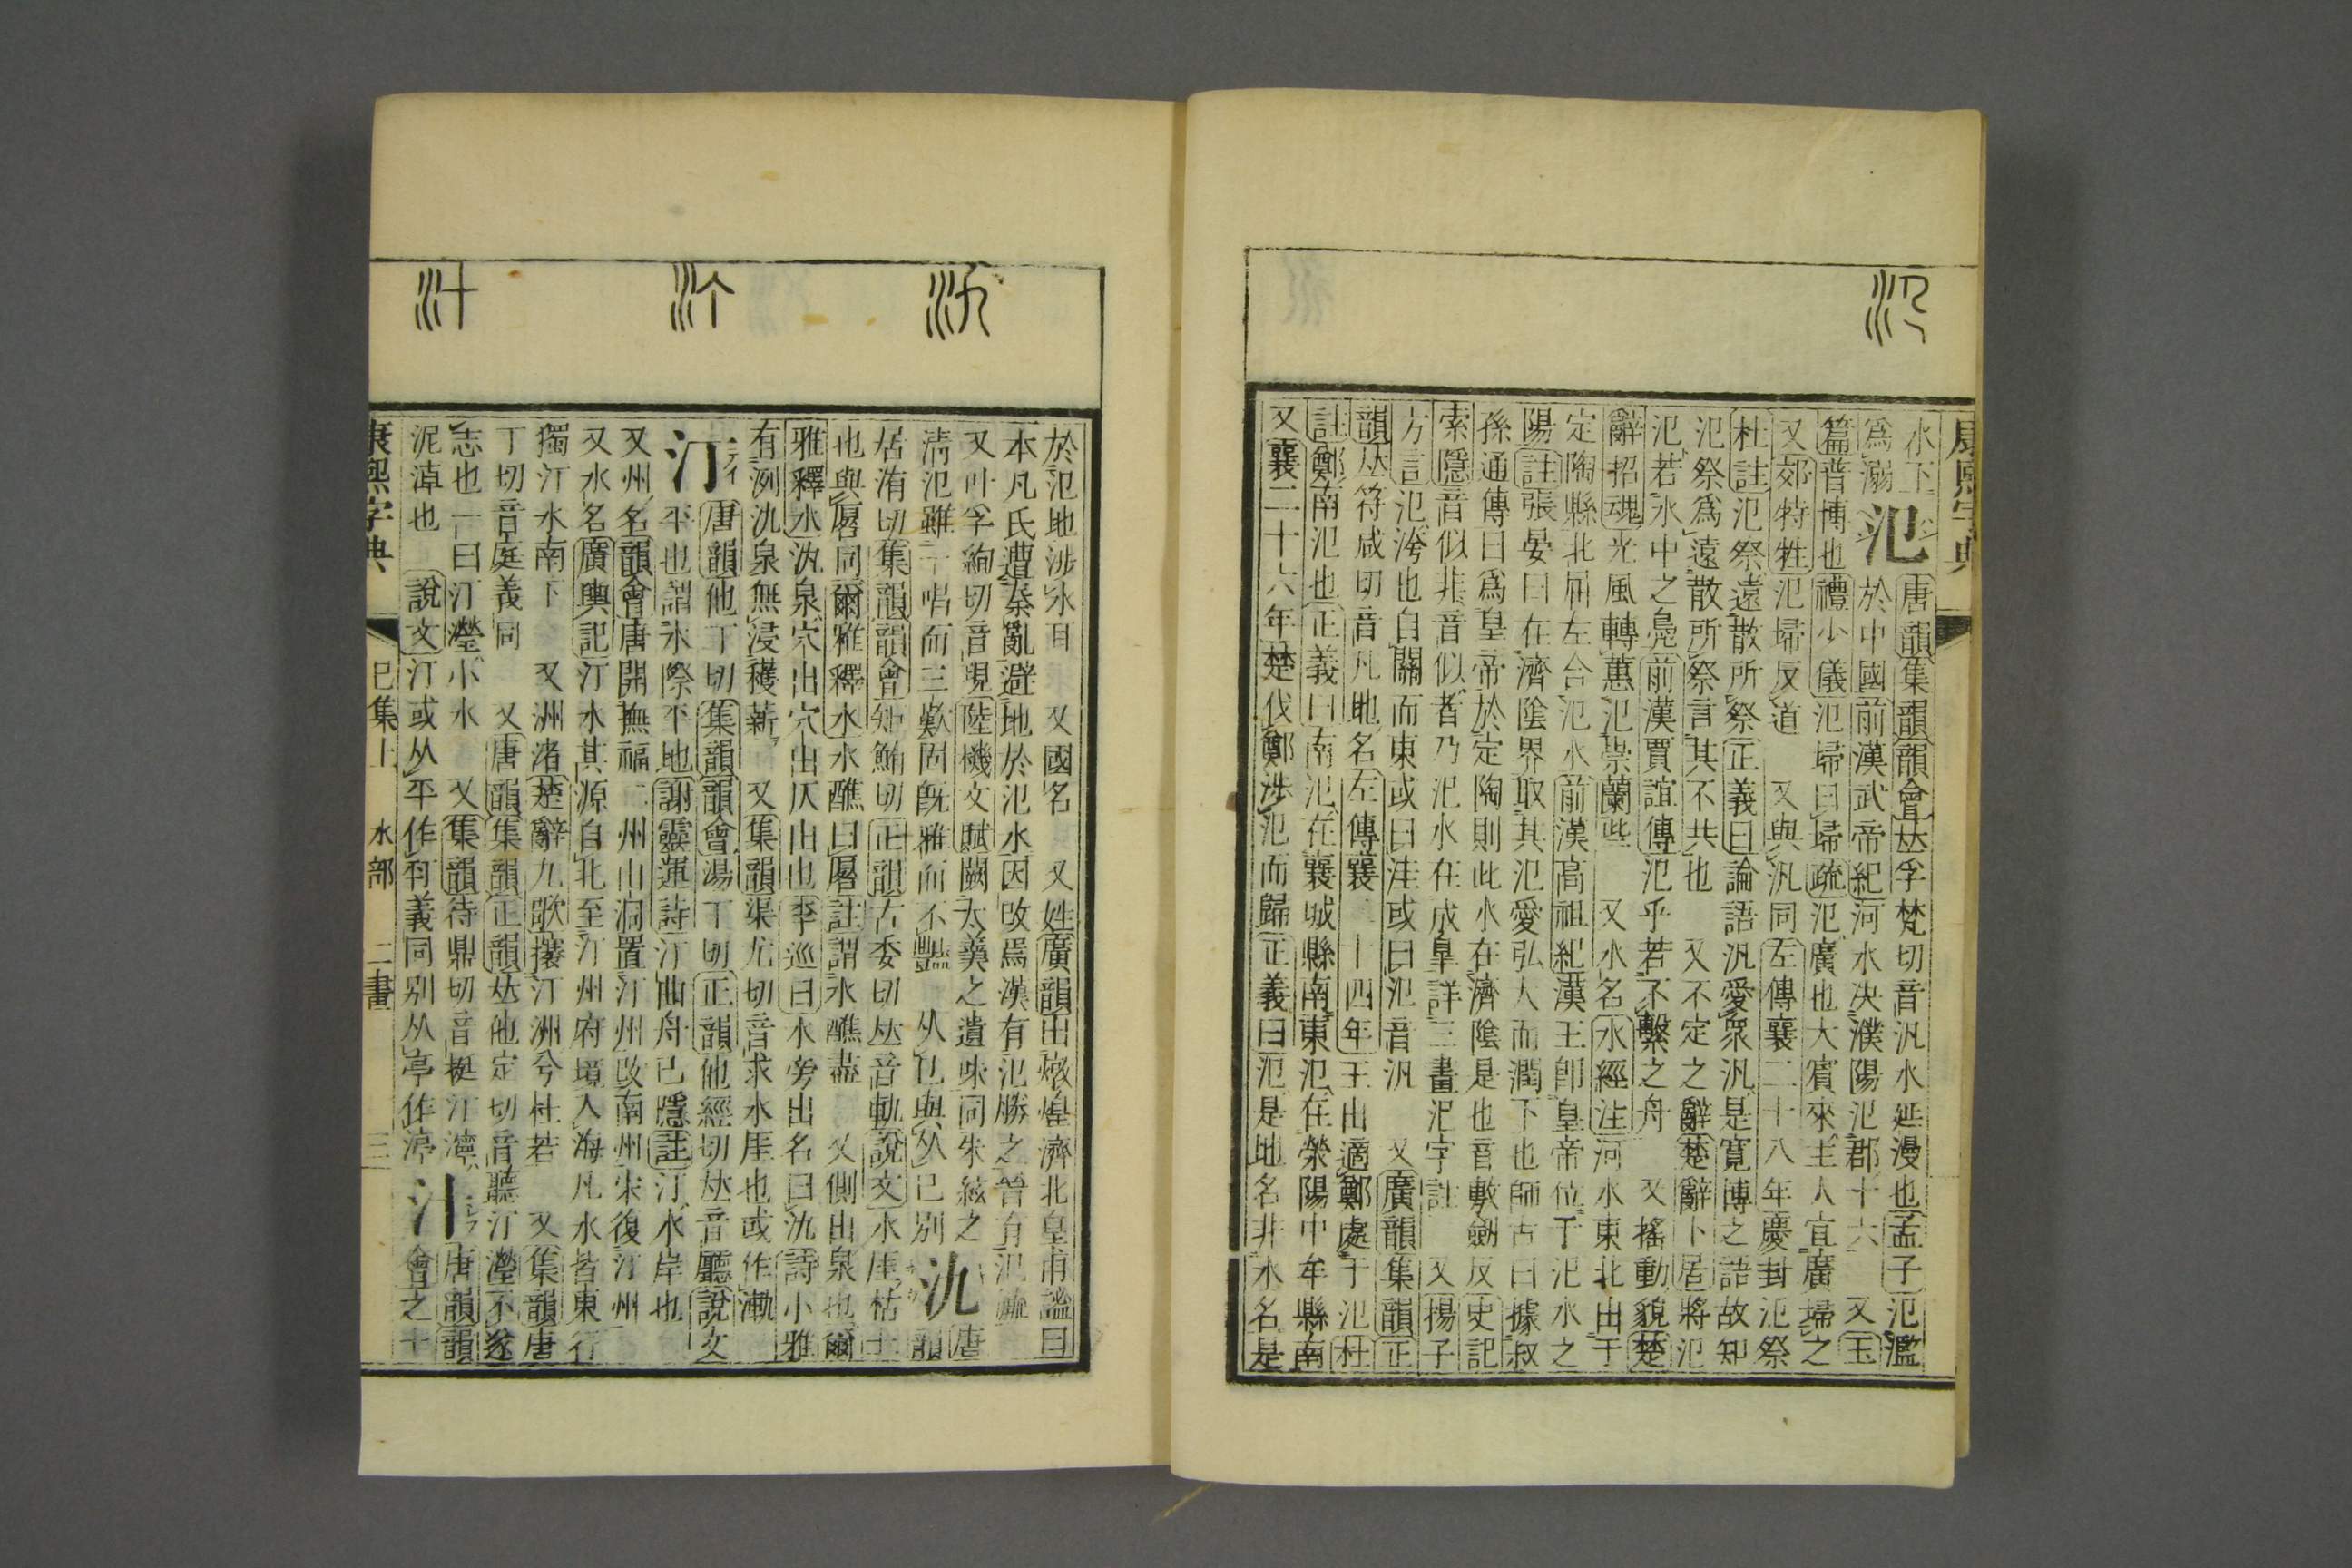 康熙字典
水下 唐韻集韻韻會𠀤孚梵切音汎水延漫也孟子氾濫
爲溺 氾 於中國前漢武帝紀河水決濮陽氾郡十六 又玉
篇普博也禮少儀氾埽曰埽疏氾廣也大賓來主人宜廣埽之
又郊特牲氾埽反道 又與汎同左傳襄二十八年慶封氾祭
杜註氾祭遠散所祭正義曰論語汎愛衆汎是寬博之語故知
氾祭爲遠散所祭言其不共也 又不定之辭楚辭卜居將氾
氾若水中之鳧前漢賈誼傳氾乎若不繫之舟 又搖動貌楚
辭招魂光風轉蕙氾崇蘭些 又水名水經注河水東北出于
定陶縣北屆左合氾水前漢高祖紀漢王卽皇帝位于氾水之
陽註張晏曰在濟陰界取其氾愛弘人而潤下也師古曰據叔
孫通傳曰爲皇帝於定陶則此水在濟陰是也音敷劒反史記
索隱音似非音似者乃汜水在成臯詳三畫汜字註 又揚子
方言氾洿也自關而東或曰洼或曰氾音汎 又廣韻集韻正
韻𠀤符咸切音凡地名左傳襄二十四年王出適鄭處于氾杜
註鄭南氾也正義曰南氾在襄城縣南東氾在滎陽中牟縣南
又襄二十六年楚伐鄭涉氾而歸正義曰氾是地名非水名是
於氾地涉水耳 又國名 又姓廣韻出燉煌濟北皇甫謐曰
本凡氏遭秦亂避地於氾水因改焉漢有氾勝之晉有氾毓
又叶孚絢切音現陸機文賦闕太羹之遺味同朱絃之 唐
淸氾雖一唱而三歎固旣雅而不豔 从㔾與从巳別 氿 韻
居洧切集韻韻會矩鮪切正韻古委切𠀤音軌說文水厓枯土
也與厬同爾雅釋水水醮曰厬註謂水醮盡 又側出泉也爾
雅釋水氿泉穴出穴出仄出也李巡曰水旁出名曰氿詩小雅
有洌氿泉無浸穫薪 又集韻渠尤切音求水厓也或作漸
汀 唐韻他丁切集韻韻會湯丁切正韻他經切𠀤音廳說文
平也謂水際平地謝靈運詩汀曲舟已隱註汀水岸也
又州名韻會唐開撫福二州山洞置汀州改南州宋復汀州
又水名廣輿記汀水其源自北至汀州府境入海凡水皆東行
獨汀水南下 又洲渚楚辭九歌搴汀洲兮杜若 又集韻唐
丁切音庭義同 又唐韻集韻正韻𠀤他定切音聽汀瀅不遂
志也一曰汀瀅小水 又集韻待鼎切音梃汀濘 唐韻韻
泥淖也 說文汀或从平作㲾義同別从亭作渟 汁 會之十
康熙字典 巳集上 水部 二畫 三